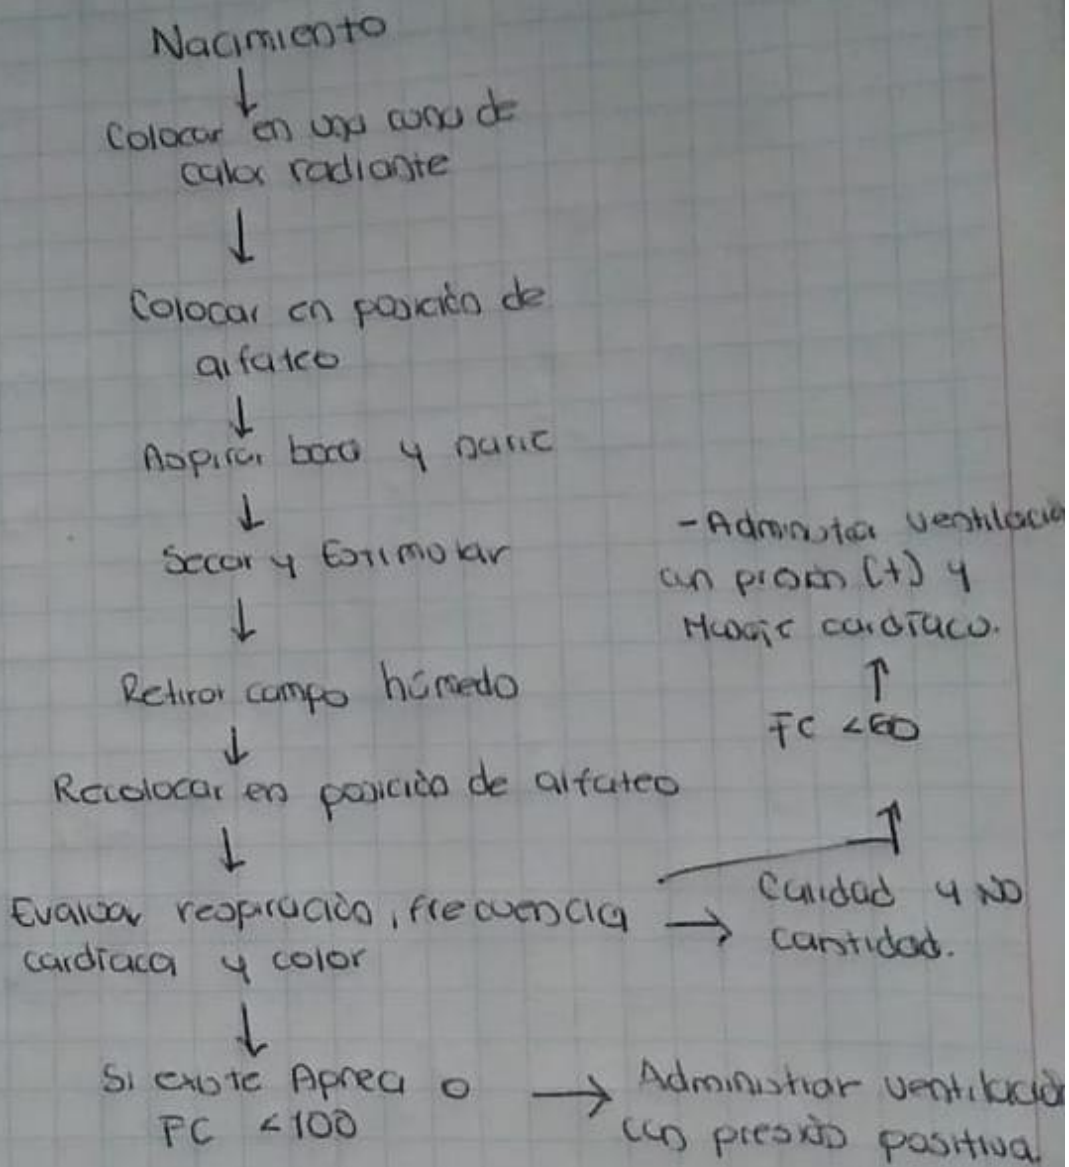 Nacimiento
↓
Colocar en una cuna de
calor radiante
↓
Colocar en posición de
olfateo
↓
Aspirar boca y nariz
↓
Secar y Estimular
↓
Retirar campo húmedo
↓
Recolocar en posición de olfateo
↓
Evaluar respiración, frecuencia
cardíaca y color
→ Calidad y NO
cantidad.
↑
FC <60
↑
-Administrar ventilación
con presión (+) y
Masaje cardíaco.
↓
Si existe Apnea o
FC <100
→ Administrar ventilación
con presión positiva.